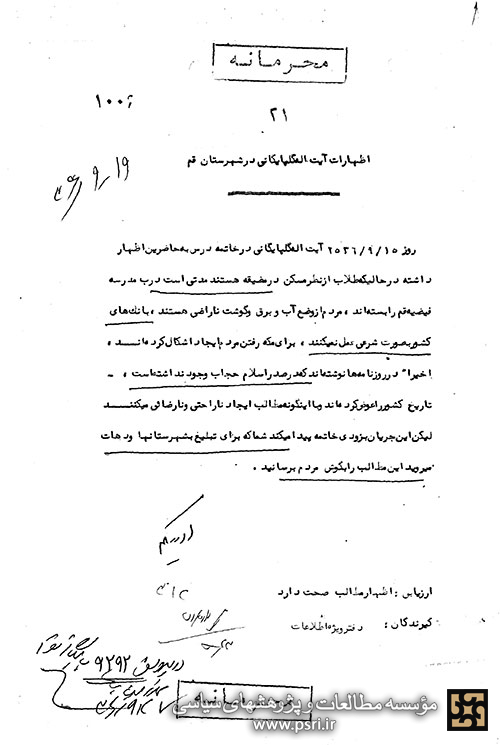 محرمانه
۲۱
اظهارات آیت اله گلپایگانی در شهرستان قم
۱۹/۹/
روز ۱۵/۹/۲۵۳۶ آیت اله گلپایگانی در خاتمه درس به حاضرین اظهار
داشته در حالیکه طلاب از نظر مسکن در مضیقه هستند مدتی است درب مدرسه
فیضیه قم را بسته اند، مردم از وضع آب و برق و گوشت ناراضی هستند، بانک های
کشور بصورت شرعی عمل نمیکنند، برای مکه رفتن مردم ایجاد اشکال کرده اند،
اخیرا" در روزنامه ها نوشته اند که در صدر اسلام حجاب وجود نداشته است، -
تاریخ کشور را عوض کرده اند و با اینگونه مطالب ایجاد ناراحتی و نارضائی میکنند
لیکن این جریان بزودی خاتمه پیدا میکند شما که برای تبلیغ بشهرستانها و دهات
میروید این مطالب را بگوش مردم برسانید.
ارزیابی: اظهار مطالب صحت دارد
گیرندگان: دفتر ویژه اطلاعات
۹۲۹۲
محرمانه
مؤسسه مطالعات و پژوهشهای سیاسی
www.psri.ir